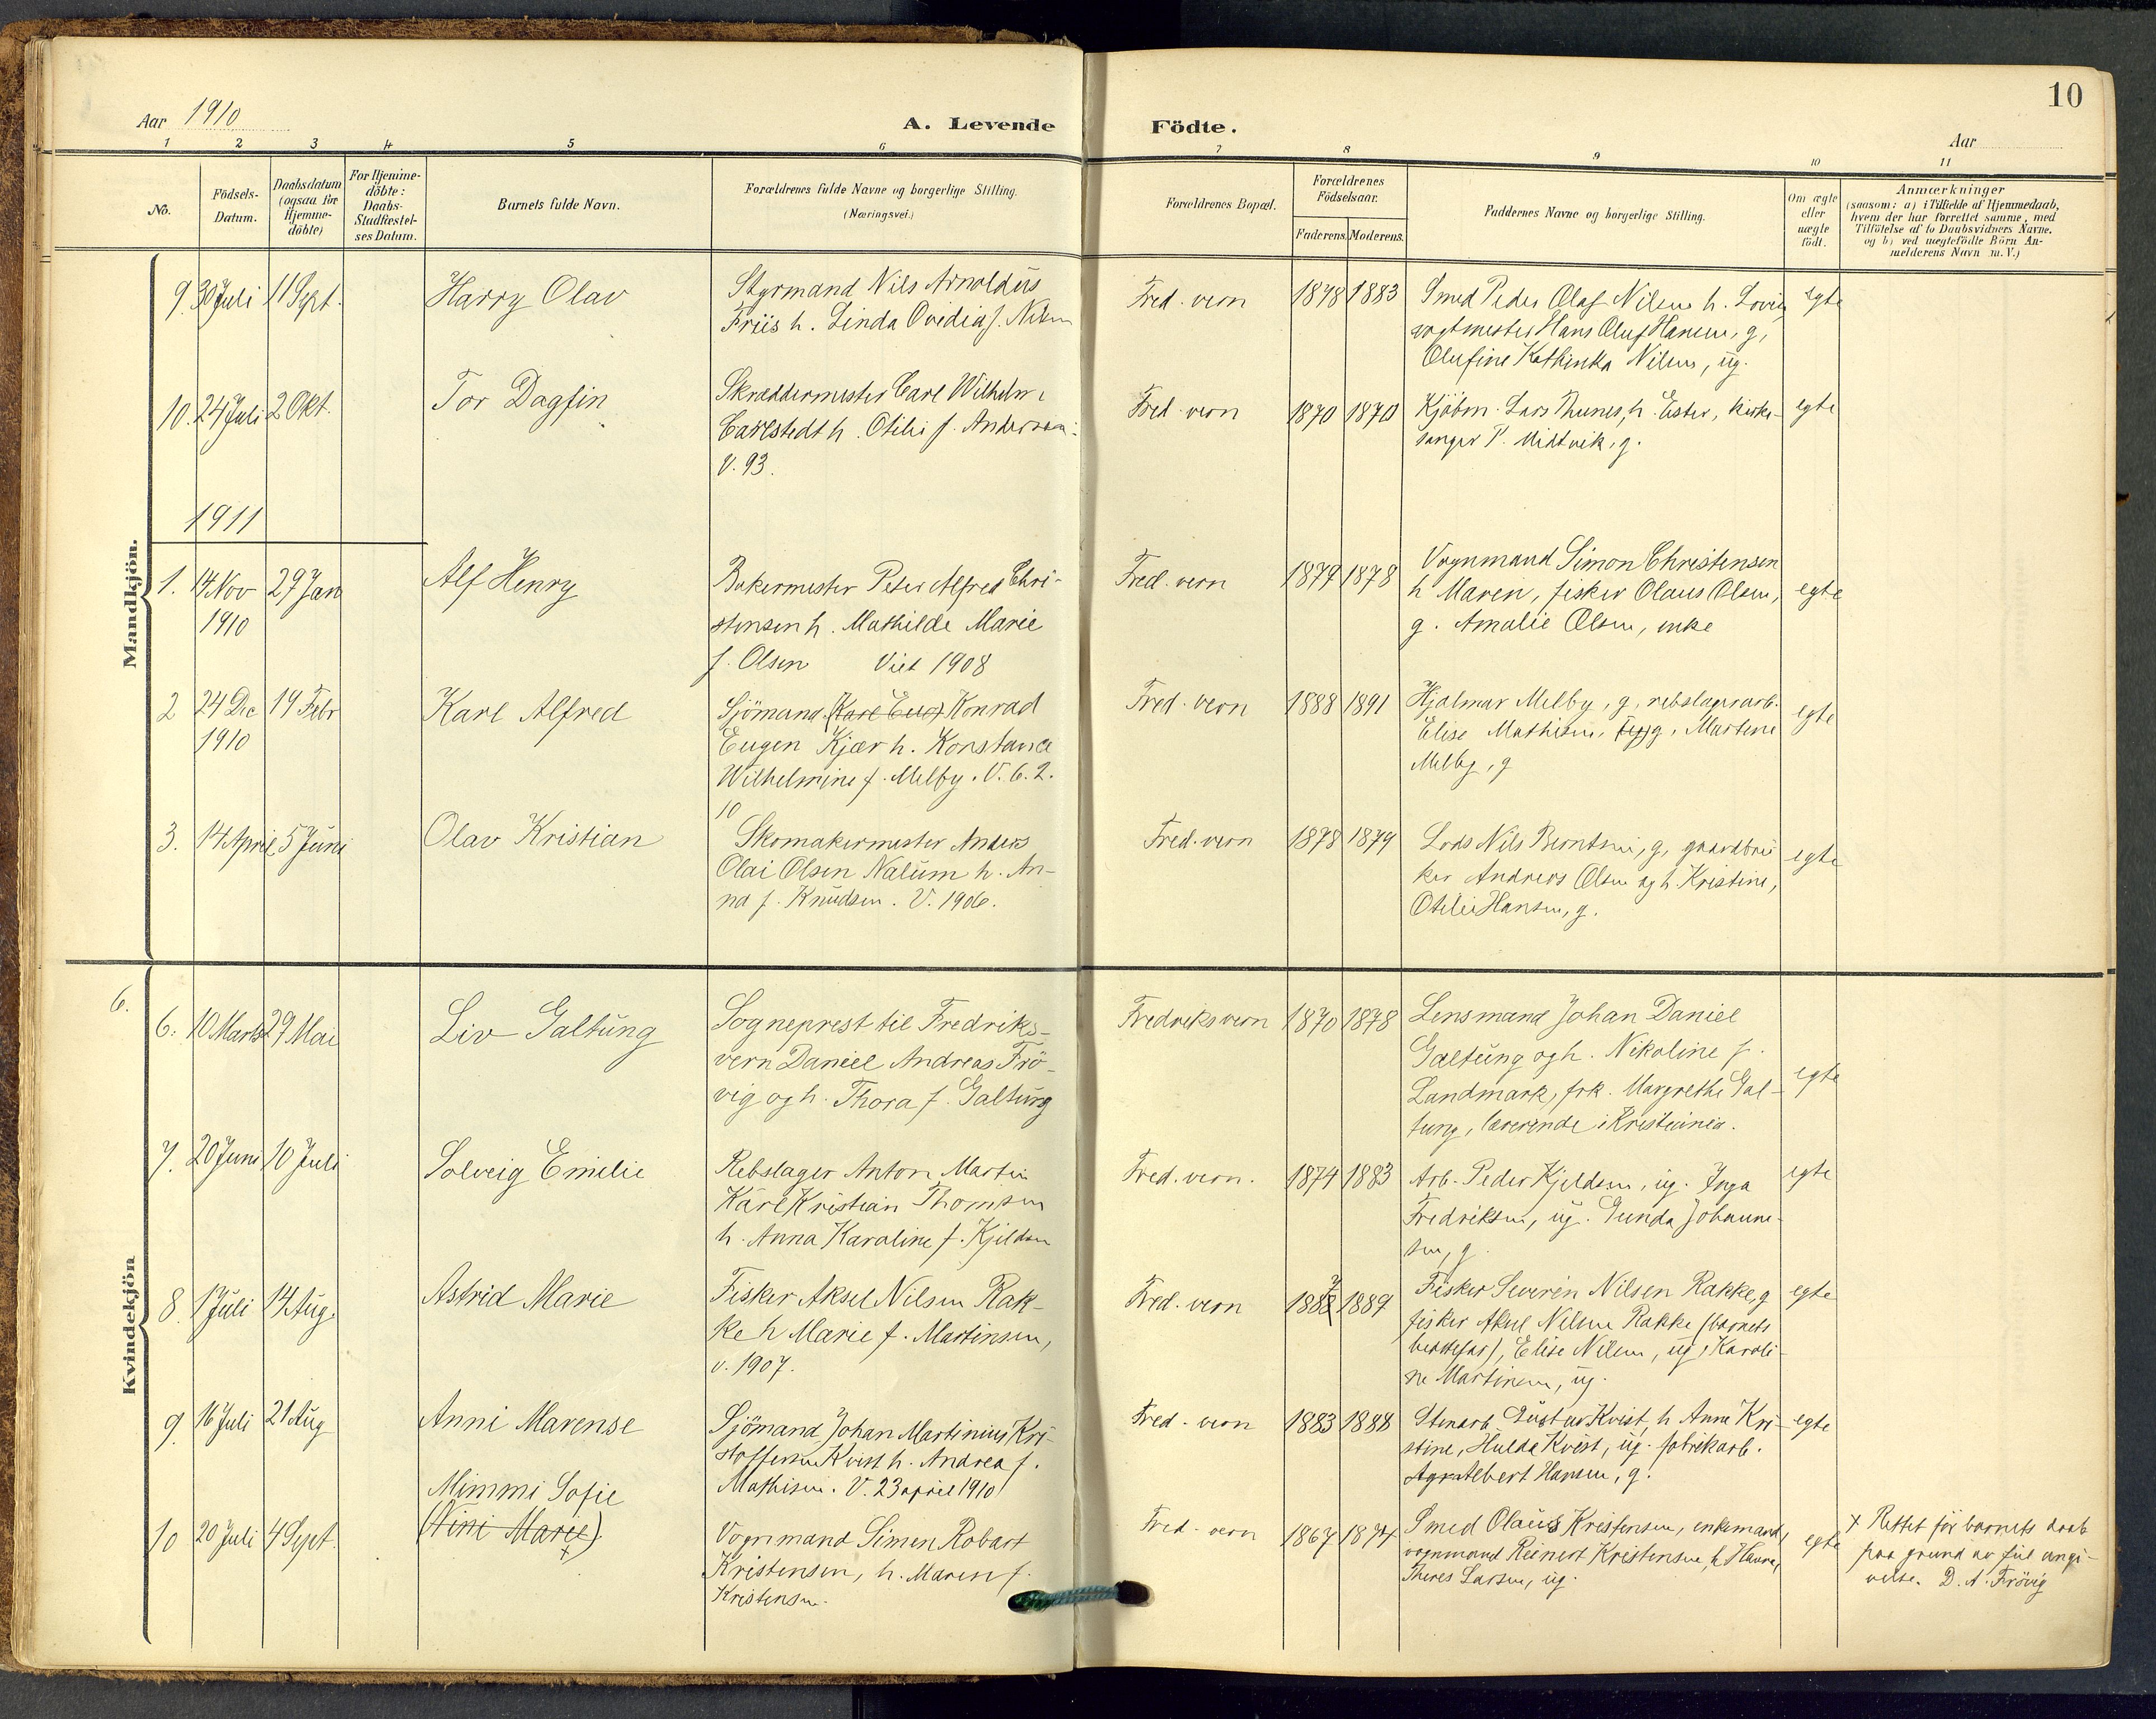 10
Aar 1910
A. Levende Födte.
Aar
1 2 3 4 5 6 7 8 9 10 11
No.
Födsels-
Datum.
Daabsdatum
(ogsaa for
Hjemme-
döbte)
For Hjemme-
döbte:
Daabs-
Stadfæstel-
ses Datum.
Barnets fulde Navn.
Forældrenes fulde Navne og borgerlige Stilling.
(Næringsvei.)
Forældrenes Bopæl.
Forældrenes
Födselsaar.
Faderens. Moderens.
Faddernes Navne og borgerlige Stilling.
Om ægte
eller
uægte
född.
Anmærkninger
(saasom: a) i Tilfælde af Hjemmedaab,
hvem der har forrettet samme, med
Tilföielse af to Daabsvidners Navne.
og b) ved uægtefödte Börn An-
melderens Navn m. V.)
Mandkjön.
9. 30 Juli 11 Sept. Harry Olav
Styrmand Nils Arnoldus
Friis h. Linda Ovidia f. Nilsen
Fred. vern 1878 1883
Smed Peder Olaf Nilsen h. Lovise,
vogtmester Hans Oluf Hansen, g,
Olufine Kathinka Nilsen, ug.
egte
10. 24 Juli 2 Okt. Tor Dagfin
Skræddermester Carl Wilhelm
Carlstedt h. Otilie f. Andersen.
V. 93.
Fred. vern 1870 1870
Kjöbm. Lars Thunes, h. Ester, kirke-
sanger P. Midtvik, g.
egte
1911
1. 14 Nov 29 Jan Alf Henry
1910
Bakermester Peter Alfred Chri-
stensen h. Mathilde Marie
f. Olsen Viet 1908
Fred. vern 1879 1878
Vognmand Simon Christensen
h Maren, fisker Olaus Olsen,
g. Amalie Olsen, enke
egte
2 24 Dec 19 Febr Karl Alfred
1910
Sjömand (Karl Eug) Konrad
Eugen Kjær h. Konstance
Wilhelmine f. Melby. V. 6. 2.
10
Fred. vern 1888 1891
Hjalmar Melby, g, rebslagerarb.
Elise Mathisen, g, Martine
Melby, g
egte
3. 14 April 5 Juni Olav Kristian
Skomakermester Anders
Olai Olsen Nalum h. An-
na f. Knudsen. V. 1906.
Fred. vern 1878 1879
Lods Nils Berntsen, g, gaardbru
ker Andreas Olsen og h. Kristine,
Otilie Hansen, g.
egte
Kvindekjön
6.
6. 10 Marts 29 Mai Liv Galtung
Sogneprest til Fredriks-
vern Daniel Andreas Frö-
vig og h. Thora f. Galtung
Fredriksvern 1870 1878
Lensmand Johan Daniel
Galtung og h. Nikoline f.
Landmark, frk. Margrethe Gal-
tung, lærerinde i Kristiania.
egte
7. 20 Juni 10 Juli Solveig Emilie
Rebslager Anton Martin
Karl Kristian Thomsen
h. Anna Karoline f. Kjeldsen
Fred. vern. 1874 1883
Arb. Peder Kjeldsen, ug. Inga
Fredriksen, ug. Gunda Johanne-
sen, g
egte
8 1 Juli 14 Aug. Astrid Marie
Fisker Aksel Nilsen Rak-
ke h Marie f. Martinsen,
v. 1907.
Fred. vern 1887 1889
Fisker Severin Nilsen Rakke, g
fisker Aksel Nilsen Rakke (barnets
bestefar), Elise Nilsen, ug, Karoli-
ne Martinsen, ug.
egte
9. 16 Juli 21 Aug Anni Marense
Sjömand Johan Martinius Kri-
stoffersen Kvist h. Andrea f.
Mathisen. V. 23 april 1910
Fred. vern 1883 1888
Stenarb. Gustav Kvist, h Anna Kri-
stine, Hulda Kvist, ug. fabrikarb.
Albert Hansen, g.
egte
Mimmi Sofie
10 20 Juli 4 Sept. (Nini Marie)
x
Vognmand Simen Robart
Kristensen, h. Maren f.
Kristensen.
Fred. vern 1867 1874
Smed Olaus Kristensen, enkemand,
vognmand Reinert Kristensen, h Maren,
Theres Larsen, ug.
egte
x Rettet för barnets daab
paa grund av feil angi-
velse. D. A. Frövig